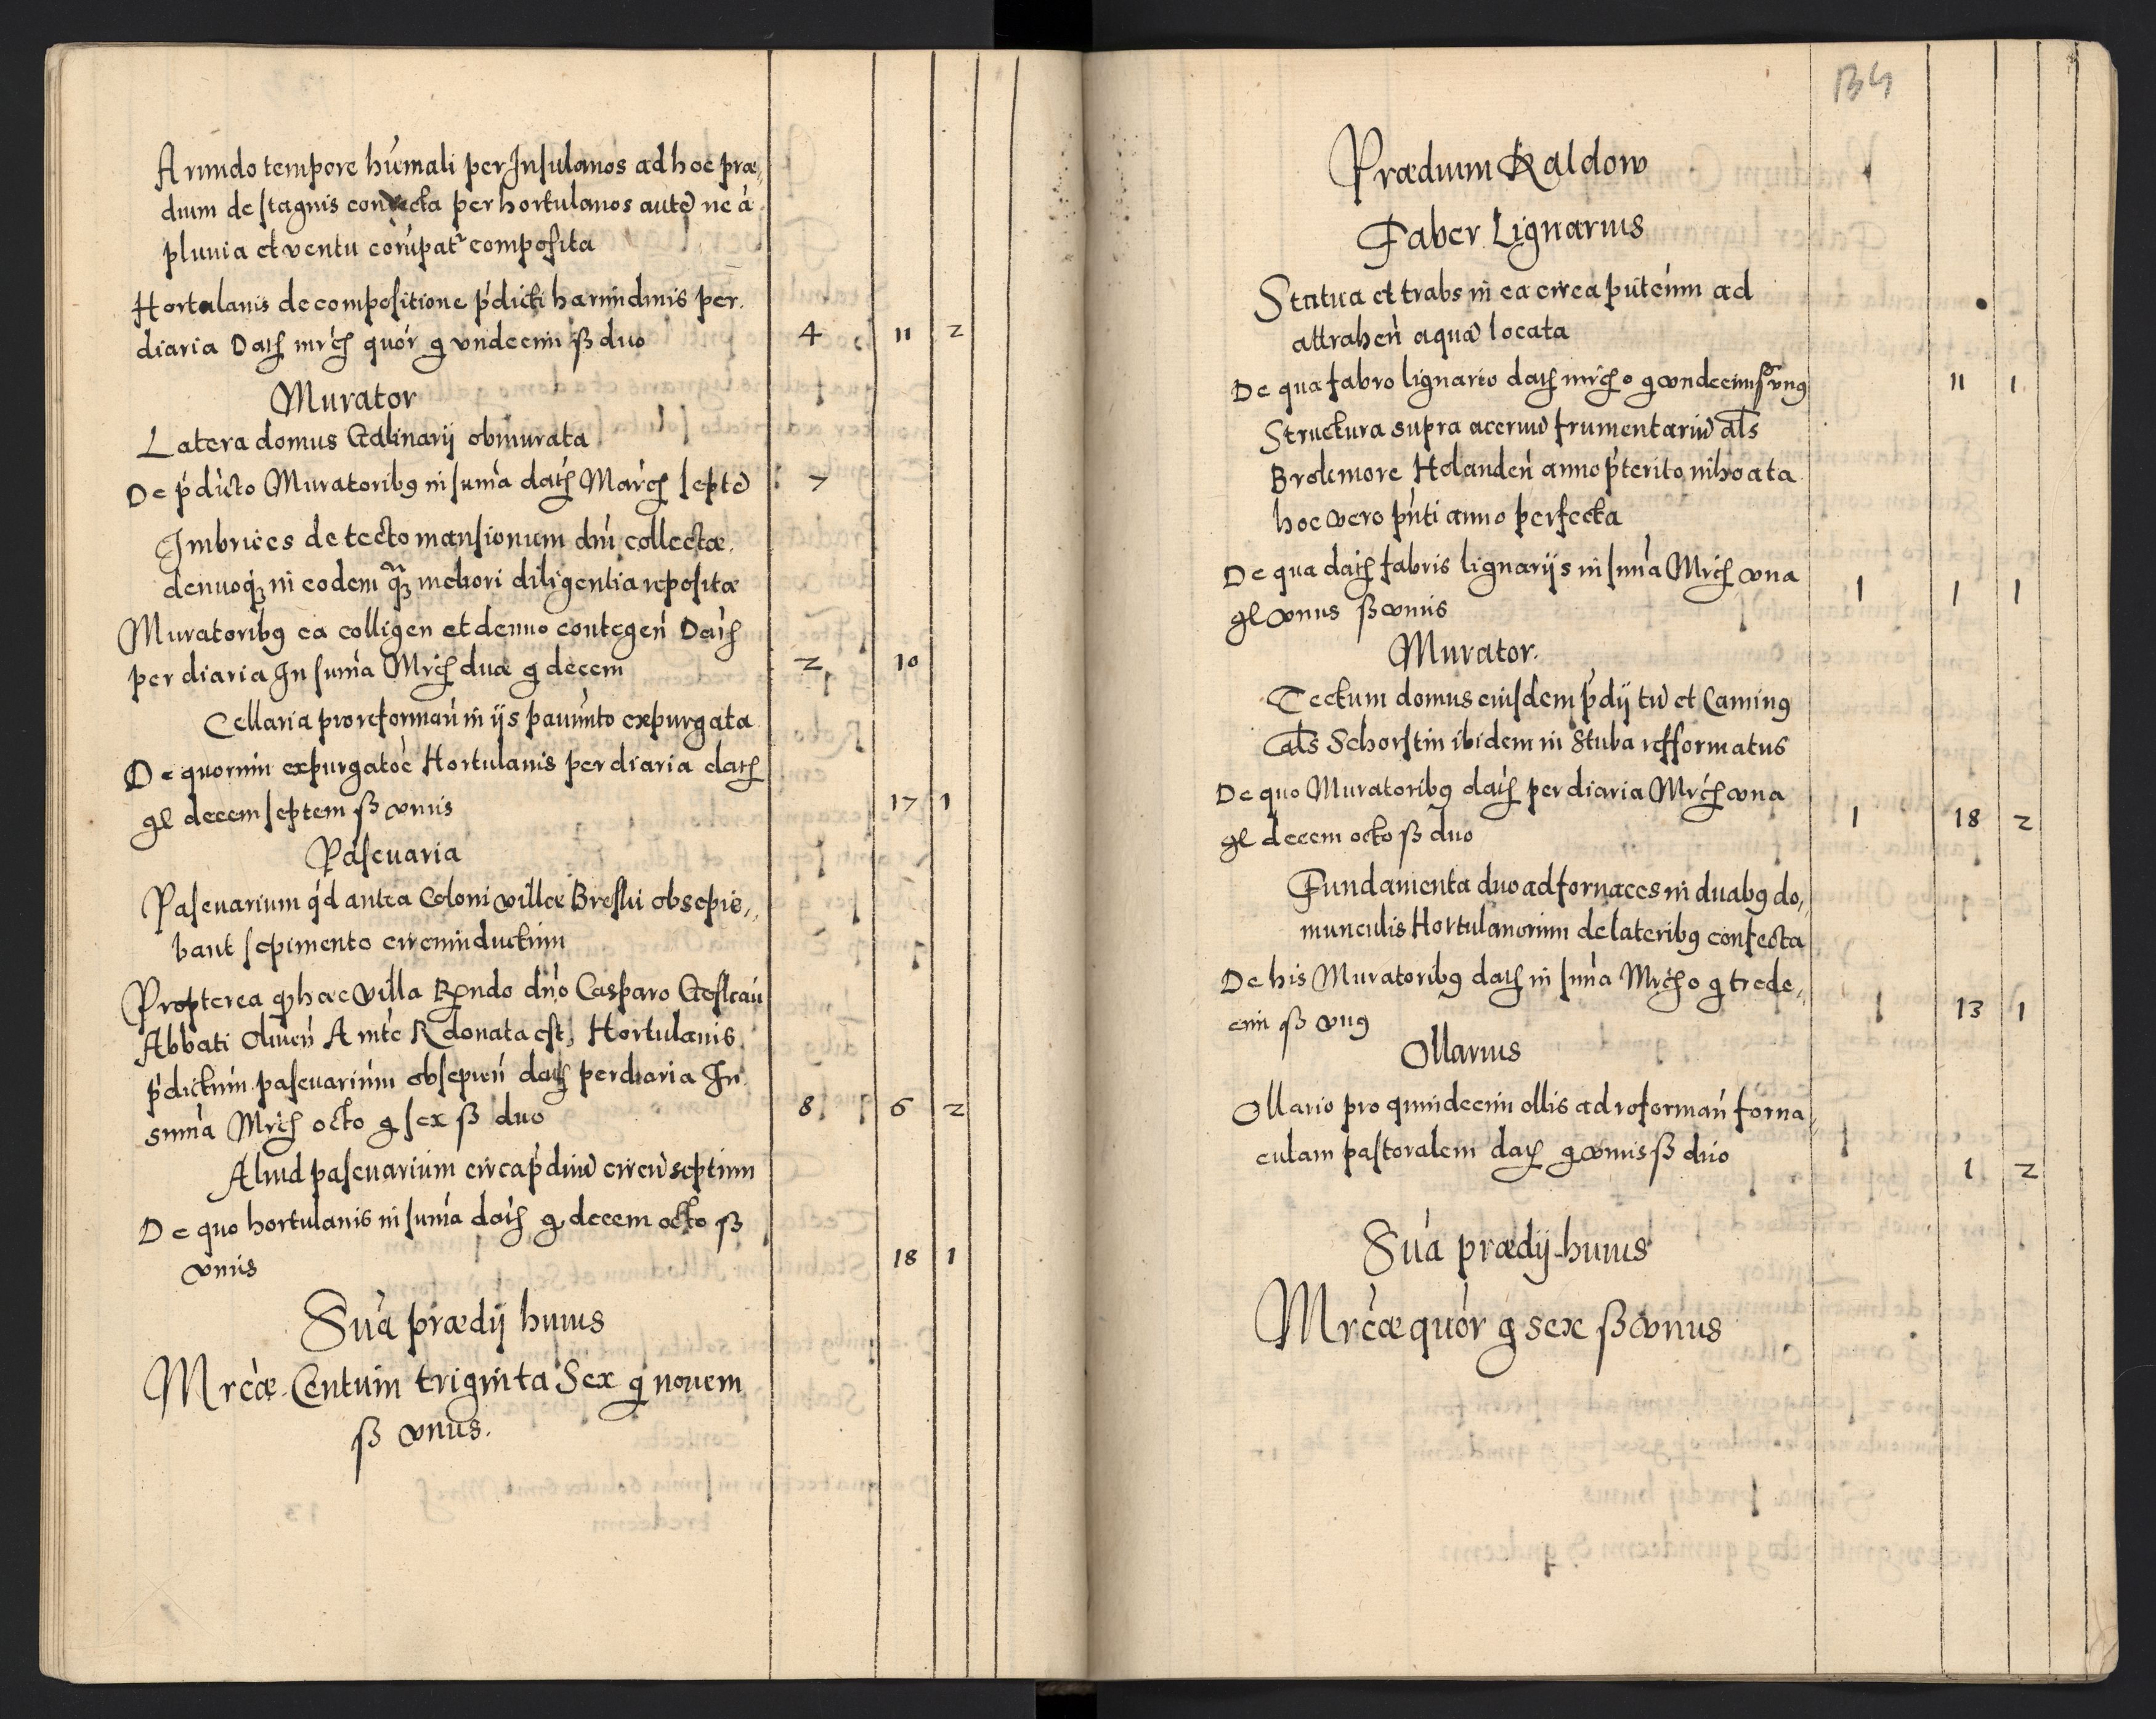 Arundo tempore húmali per Insulanos ad hoc præ,,
dium de stagnis convecta per hortulanos aute ne á
pluvia et ventu corúpat compofita
Hortulanis de compositione p'dicti harundinis per
diaria Dat mrc quór g vndecim ß duo 4 11 2
Murator
Latera domus Galinarij obmurata
De p'dicto Muratoribg in suma dat Marc septe 7
Imbrices de tecto mansionum dni collectæ
denuoq in eodem meliori diligentia reposita
Muratoribg ea colligen et denuo contegen Dat
per diaria In suma Mrc duæ g decem 2 10
Cellaria pro reforman in ijs pavimto expurgata
De quorum expurgatoe Hortulanis per diaria dat
gl decem septem ß vnus 17 1
Pascuaria
Pascuarium qd antea Coloni villæ Breslii obsepie,,
bant sepimento circumductum
Propterea q hæc villa Rndo dno Casparo Geslcau
Abbati Oliuen A mte R donata est, Hortulanis
p'dictum pascuarium obsepien dat per diaria In
suma Mrc octo g sex ß duo 8 6 2
Aliud pascuarium circa p'diu circu septum
De quo hortulanis in suma dat g decem octo ß
vnus 18 1
Sua prædij huius
Mrcæ Centum triginta Sex g novem
ß vnus.
134
Prædium Kaldow
Faber Lignarius
Statua et trabs in ea circa puteum ad
attrahen aqua locata
De qua fabro lignario dat mrc o g vndecim ß vng 11 1
Structura supra acervu frumentariu als
Brodemore Holanden anno p'terito inhoata
hoc vero pnti anno perfecta
De qua dat fabris lignarijs in suma Mrc vna
gl vnus ß vnus 1 1 1
Murator.
Tectum domus eiusdem p'dij tu et Caming
als Schorstin ibidem in Stuba refformatus
De quo Muratoribg dat per diaria Mrc vna
gl decem octo ß duo 1 18 2
Fundamenta duo ad fornaces in duabg do,,
munculis Hortulanorum de lateribg confecta
De his Muratoribg dat in suma Mrc o g trede,,
cim ß vng 13 1
Ollarius
Ollario pro quindecim ollis ad reforman forna,,
culam pastoralem dat g vnus ß duo 1 2
Sua prædij huius
Mrcæ quór g sex ß vnus